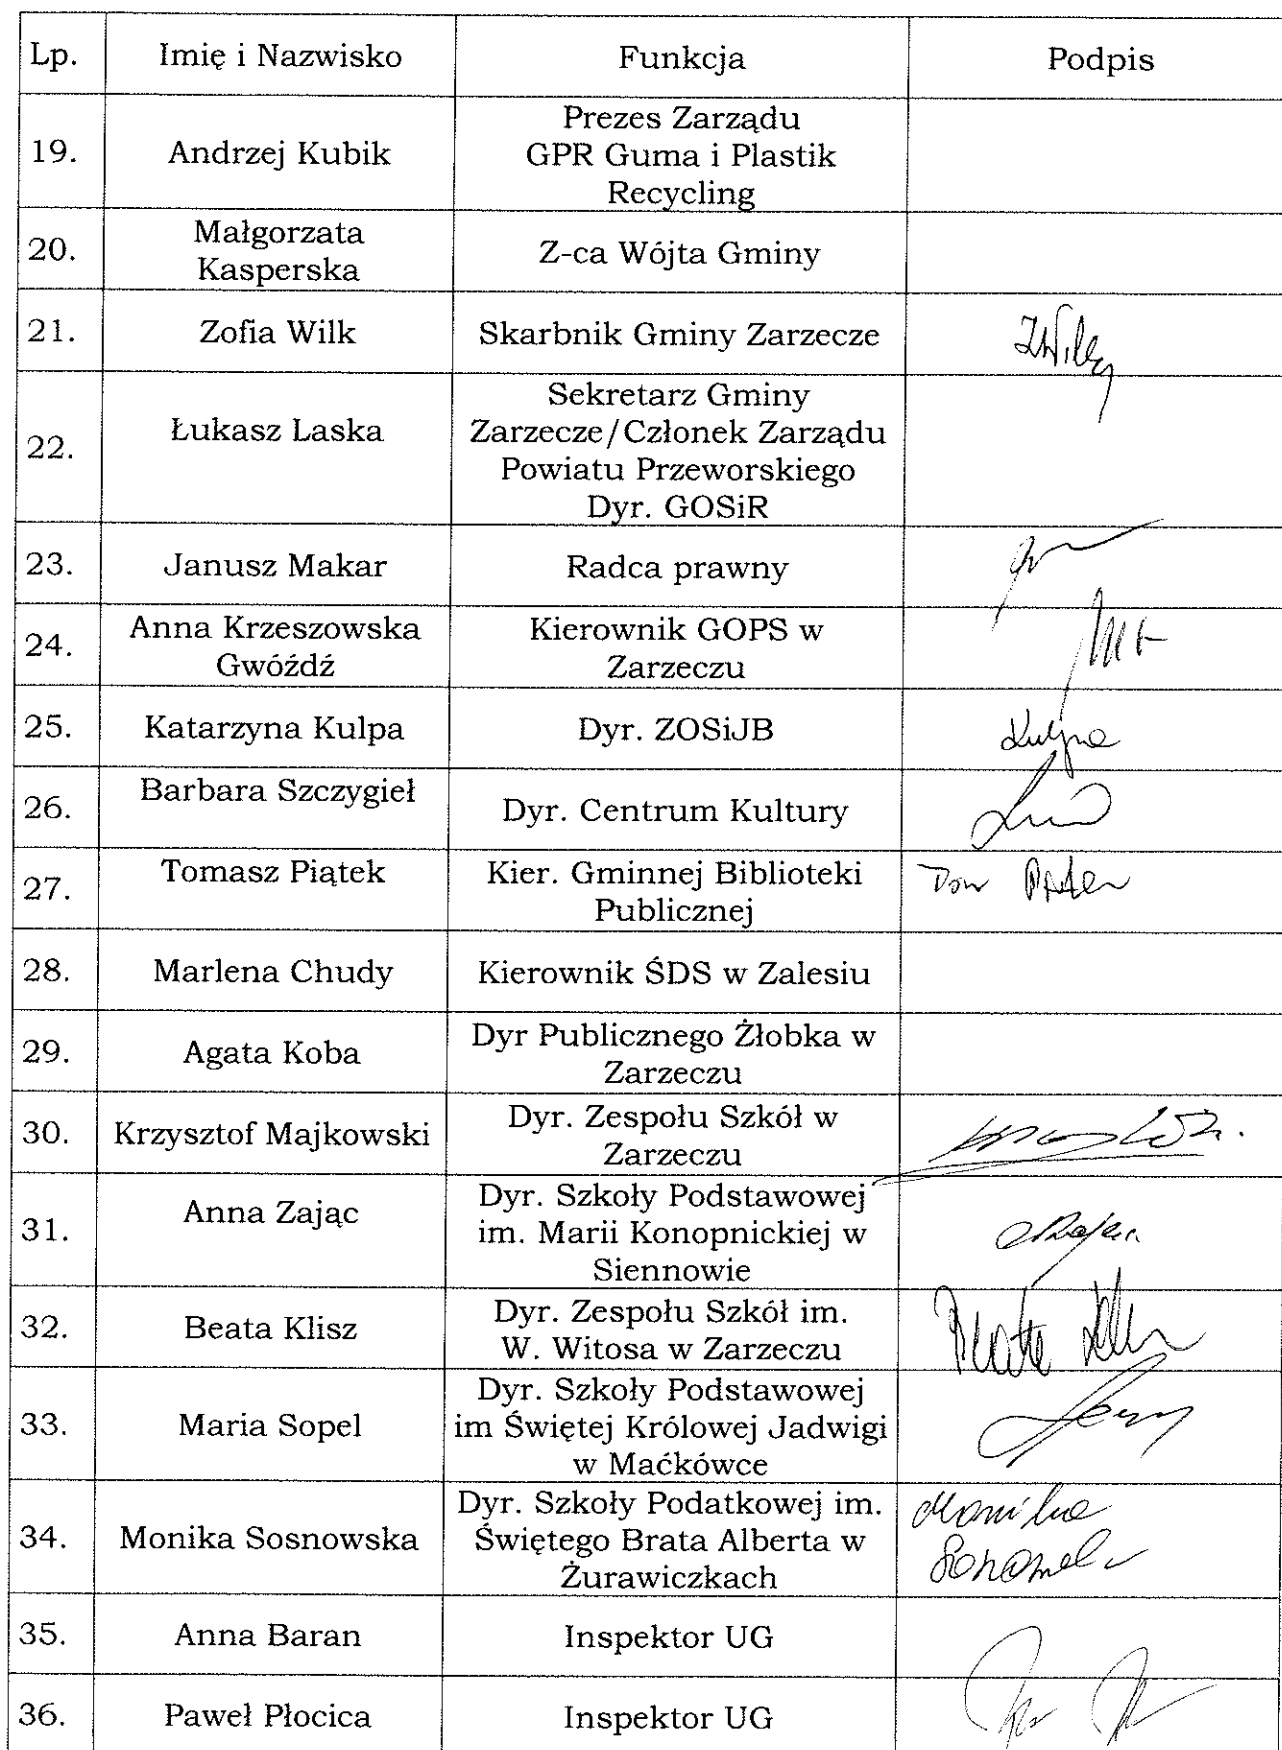 Lp.
Imię i Nazwisko
Funkcja
Podpis
19.
Andrzej Kubik
Prezes Zarządu
GPR Guma i Plastik
Recycling
20.
Małgorzata
Kasperska
Z-ca Wójta Gminy
21.
Zofia Wilk
Skarbnik Gminy Zarzecze
ZWilk
22.
Łukasz Laska
Sekretarz Gminy
Zarzecze/Członek Zarządu
Powiatu Przeworskiego
Dyr. GOSiR
23.
Janusz Makar
Radca prawny
24.
Anna Krzeszowska
Gwóźdź
Kierownik GOPS w
Zarzeczu
25.
Katarzyna Kulpa
Dyr. ZOSiJB
Kulpa
26.
Barbara Szczygieł
Dyr. Centrum Kultury
27.
Tomasz Piątek
Kier. Gminnej Biblioteki
Publicznej
28.
Marlena Chudy
Kierownik ŚDS w Zalesiu
29.
Agata Koba
Dyr Publicznego Żłobka w
Zarzeczu
30.
Krzysztof Majkowski
Dyr. Zespołu Szkół w
Zarzeczu
31.
Anna Zając
Dyr. Szkoły Podstawowej
im. Marii Konopnickiej w
Siennowie
32.
Beata Klisz
Dyr. Zespołu Szkół im.
W. Witosa w Zarzeczu
Beata
33.
Maria Sopel
Dyr. Szkoły Podstawowej
im Świętej Królowej Jadwigi
w Maćkówce
34.
Monika Sosnowska
Dyr. Szkoły Podatkowej im.
Świętego Brata Alberta w
Żurawiczkach
Monika
35.
Anna Baran
Inspektor UG
36.
Paweł Płocica
Inspektor UG